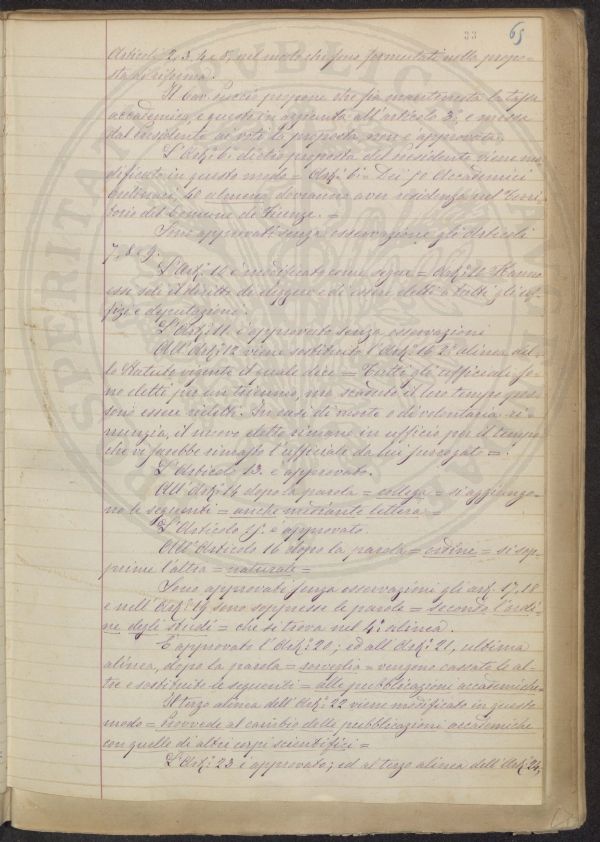 33 65
Articoli 2, 3, 4 e 5, nel modo che sono formulati nella propo-
sta di riforma.
Il Cav. Puccio propone che sia mantenuta la tassa
accademica e questi in aggiunta all'articolo 3°, e messa
dal Presidente ai voti la proposta non è approvata.
L'Art. 6. dietro proposta del Presidente viene mo-
dificato in questo modo = Art. 6 = Dei 70 Accademici
ordinari, 40 almeno dovranno aver residenza nel Terri-
torio del Comune di Firenze. =
Sono approvati senza osservazione gli Articoli
7, 8 e 9.
L'Art. 10 è modificato come segue = Art. 10 Hanno
essi soli il diritto di eleggere e di essere eletti a tutti gli uf-
fizi e deputazioni.
L'Art. 11. è approvato senza osservazioni
All'Art. 12 viene sostituito l'Art. 16 2° alinea del-
lo Statuto vigente il quale dice = Tutti gli ufficiali so-
no eletti per un triennio, ma scaduto il loro tempo pos-
sono essere rieletti. In casi di morte o di volontaria ri-
nunzia, il nuovo eletto rimane in ufficio per il tempo
che vi sarebbe rimasto l'ufficiale da lui surrogato =.
L'Articolo 13. è approvato.
All'Art. 14 dopo la parola = collega = si aggiungo-
no le seguenti = anche mediante lettera =
L'Articolo 15. è approvato
All'Articolo 16 dopo la parola = ordine = si sop-
prime l'altra = naturale =
Sono approvati senza osservazioni gli art. 17, 18
e nell'Art. 19 sono soppresse le parole = secondo l'ordi-
ne degli studi = che si trova nel 4° alinea.
È approvato l'Art. 20; ed all'Art. 21, ultima
alinea, dopo la parola = sorveglia = vengono cassate le al-
tre e sostituite le seguenti = alle pubblicazioni accademiche =
Il terzo alinea dell'Art. 22 viene modificato in questo
modo = Provvede al cambio delle pubblicazioni accademiche
con quelle di altri corpi scientifici =
L'Art. 23 è approvato; ed al terzo alinea dell'Art. 24,